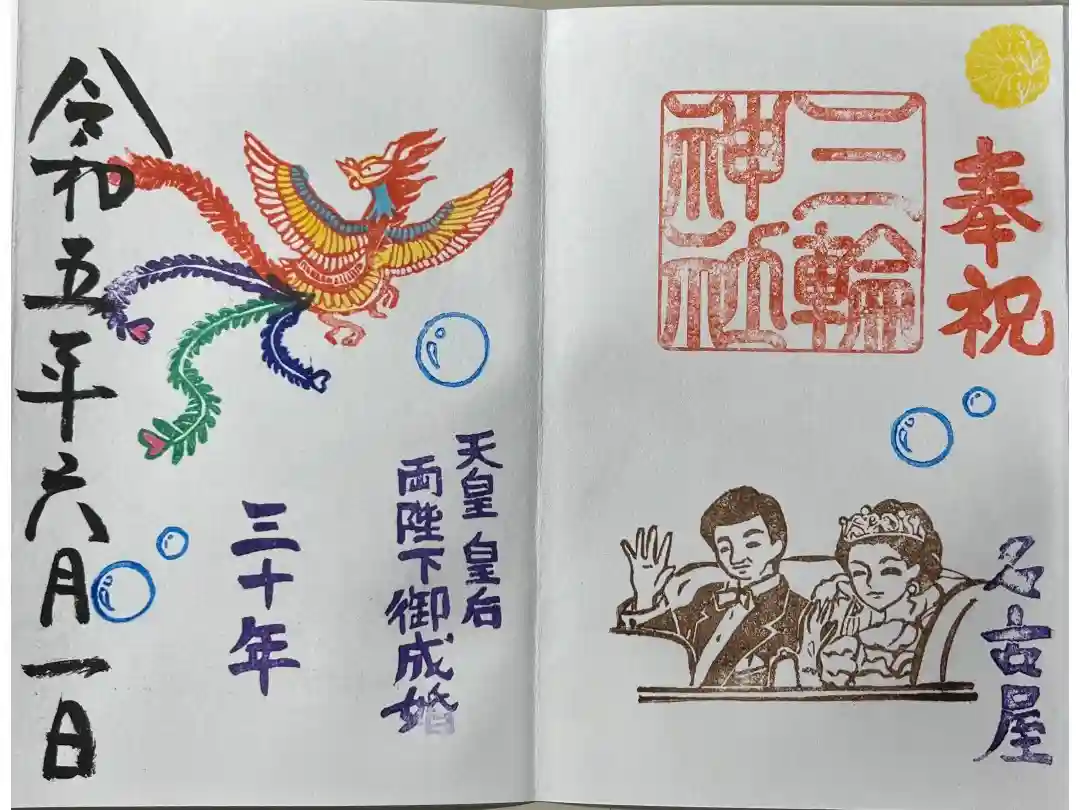 奉祝
三輪
神社
名古屋
天皇皇后
両陛下御成婚
三十年
令和五年六月一日